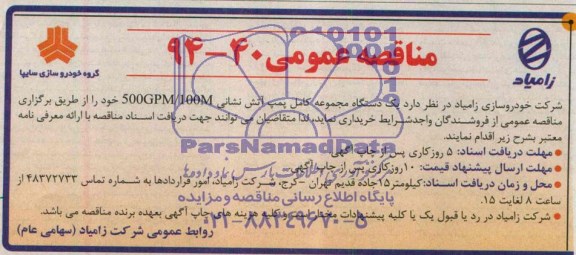 مناقصه عمومی ۴۰-۹۴
گروه خودروسازی سایپا
زامیاد
شرکت خودروسازی زامیاد در نظر دارد یک دستگاه مجموعه کامل پمپ آتش نشانی 500GPM/100M خود را از طریق برگزاری
مناقصه عمومی از فروشندگان واجدشرایط خریداری نماید، لذا متقاضیان می توانند جهت دریافت اسناد مناقصه با ارائه معرفی نامه
معتبر بشرح زیر اقدام نمایند.
• مهلت دریافت اسناد: ۵ روزکاری پس از چاپ آگهی
• مهلت ارسال پیشنهاد قیمت: ۱۰ روزکاری پس از چاپ آگهی
• محل و زمان دریافت اسناد: کیلومتر ۱۵ جاده قدیم تهران - کرج، شرکت زامیاد، امور قراردادها به شماره تماس ۴۸۳۷۲۷۳۳ از
ساعت ۸ لغایت ۱۵.
• شرکت زامیاد در رد یا قبول یک یا کلیه پیشنهادات مختار است و کلیه هزینه های چاپ آگهی بعهده برنده مناقصه می باشد.
روابط عمومی شرکت زامیاد (سهامی عام)
ParsNamadData
پایگاه اطلاع رسانی مناقصه و مزایده
۰۲۱-۸۸۳۴۹۶۷۰-۵